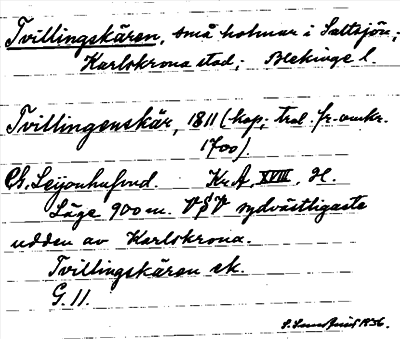 Tvillingskären, små holmar i Saltsjön;
Karlskrona stad; Blekinge l.
Tvillingenskär, 1811 (kop; trol. fr. omkr.
1700).
Ch. Leijonhufvud. Kr.A, XVIII, H.
Läge 900 m. VSV sydvästligaste
udden av Karlskrona.
Tvillingskären ek.
G. 11.
1936.